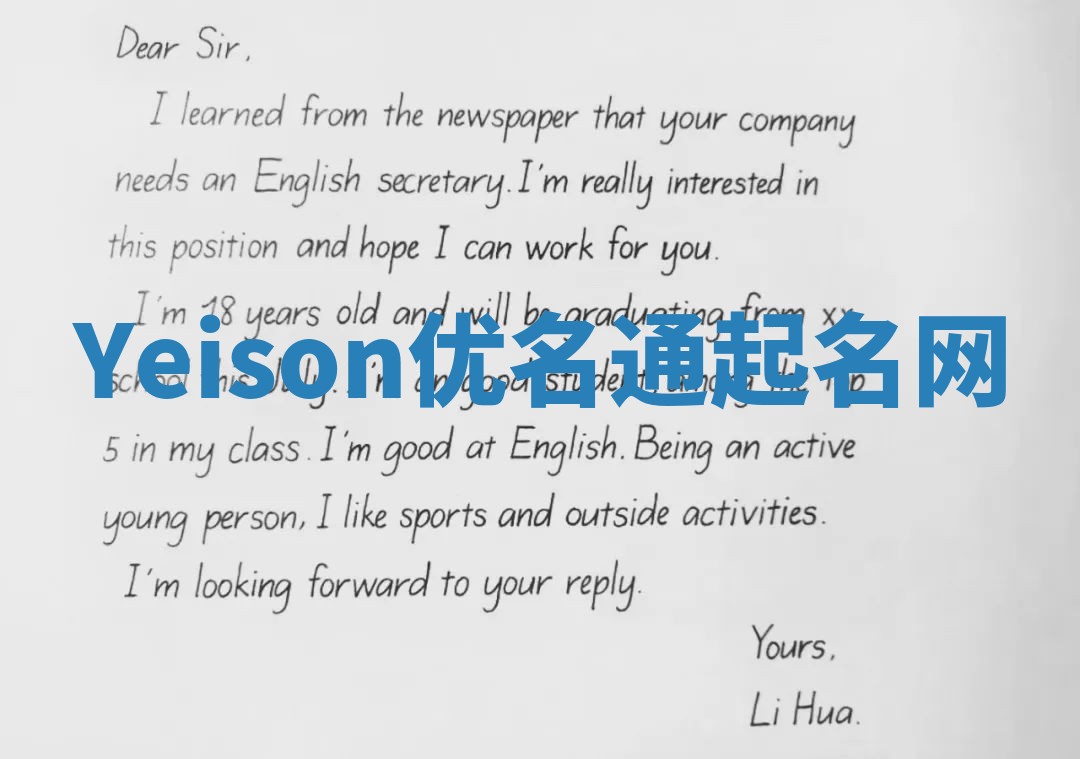 Dear Sir,
I learned from the newspaper that your company
needs an English secretary. I'm really interested in
this position and hope I can work for you.
I'm 18 years old and will be graduating from xx
Yeison优名通起名网
school this July. I'm an good student, among the top
5 in my class. I'm good at English. Being an active
young person, I like sports and outside activities.
I'm looking forward to your reply.
Yours,
Li Hua.